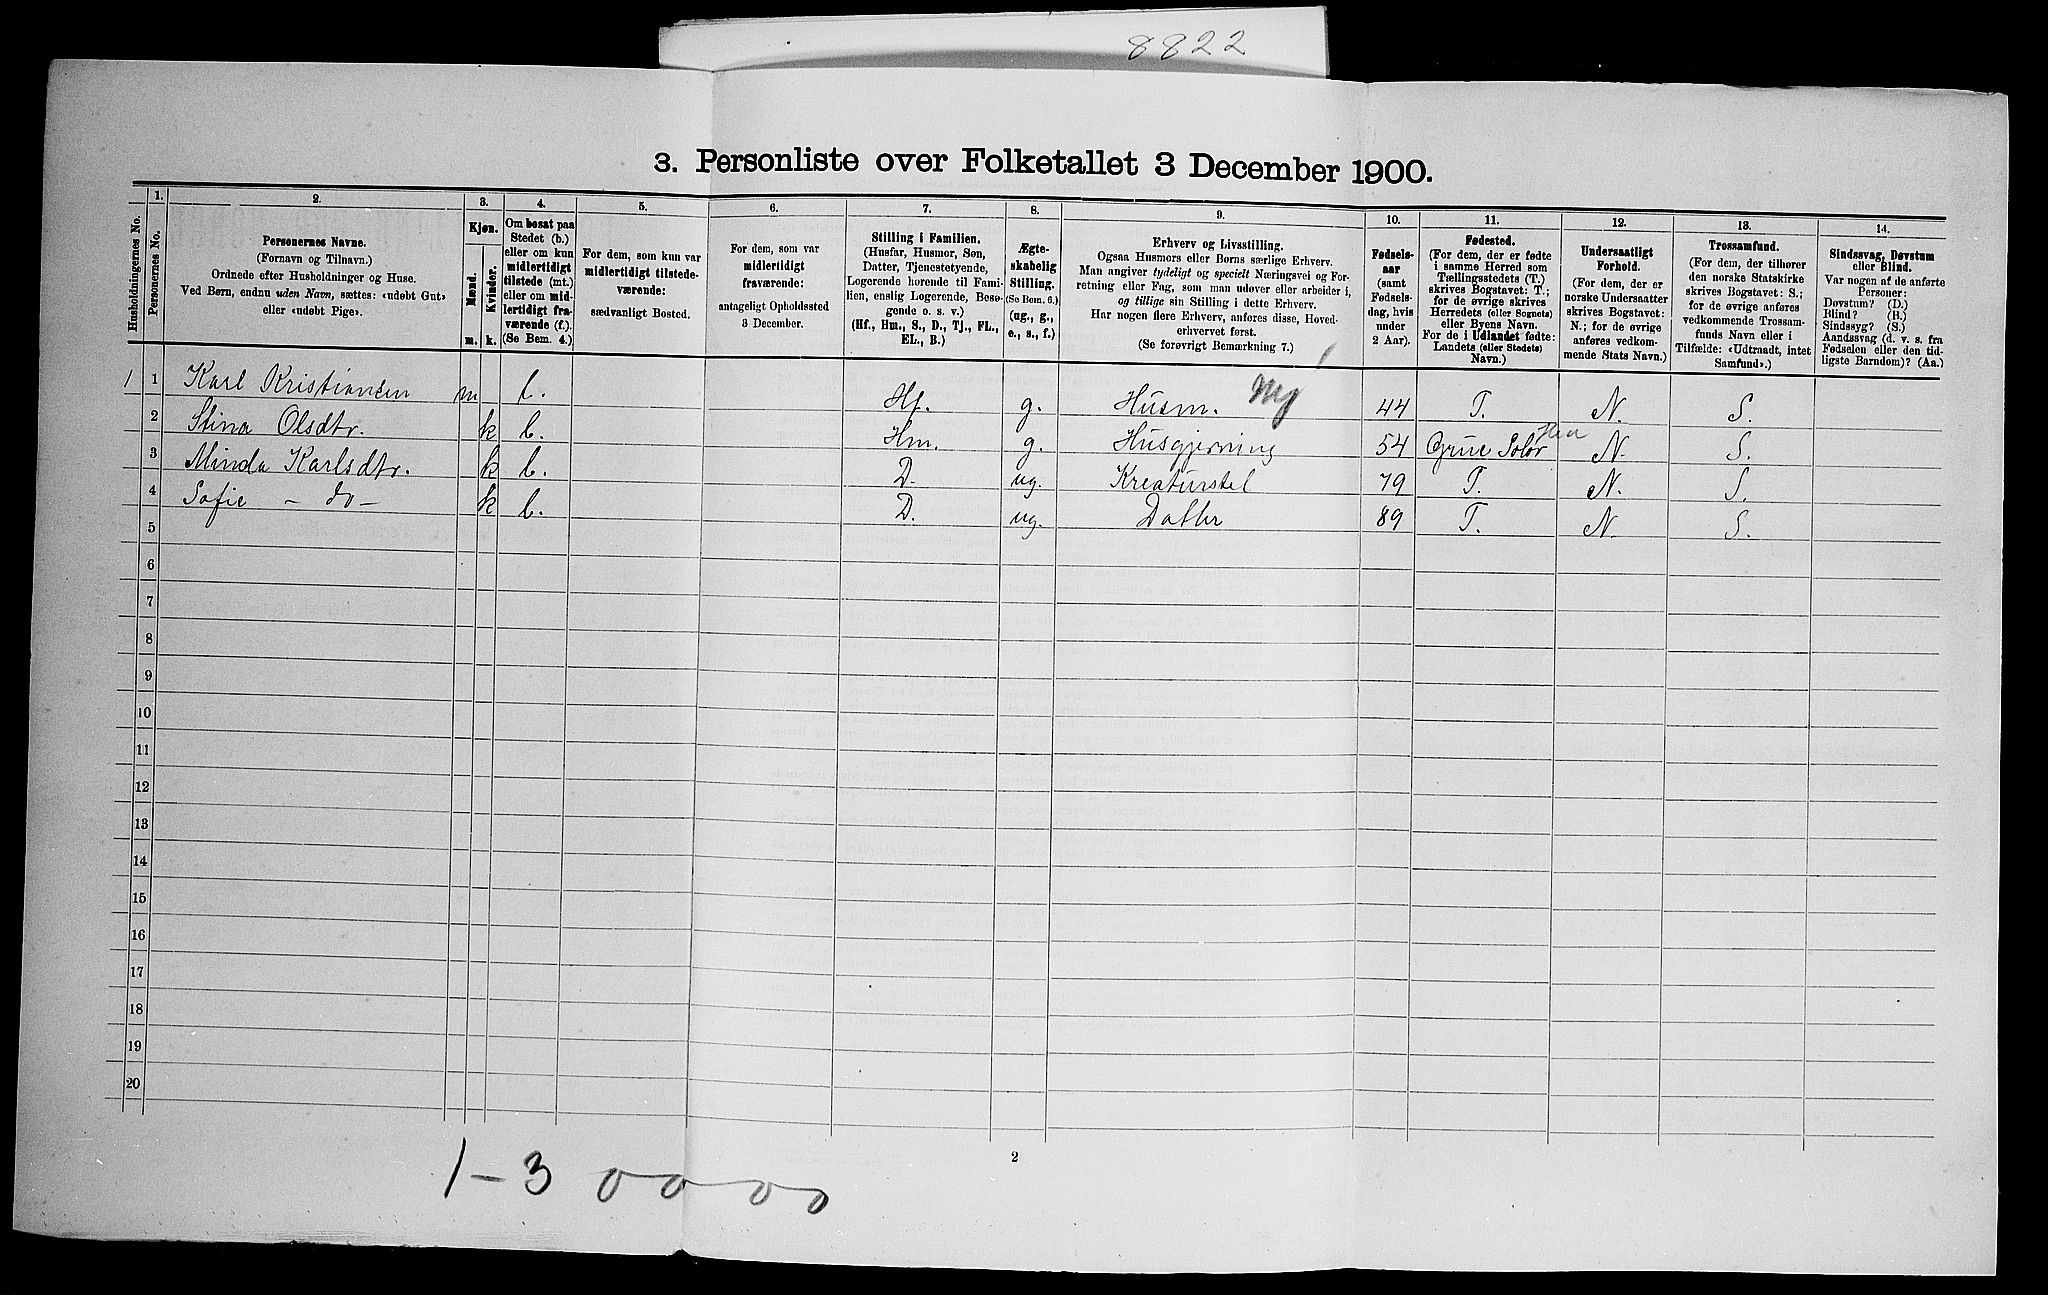 8822
3. Personliste over Folketallet 3 December 1900.
Husholdningernes No.
1.
Personernes No.
2.
Personernes Navne.
(Fornavn og Tilnavn.)
Ordnede efter Husholdninger og Huse.
Ved Børn, endnu uden Navn, sættes: «udøbt Gut»
eller «udøbt Pige».
3.
Kjøn.
Mænd.
Kvinder.
m. k.
4.
Om bosat paa
Stedet (b.)
eller om kun
midlertidigt
tilstede (mt.)
eller om mid-
lertidigt fra-
værende (f.).
(Se Bem. 4.)
5.
For dem, som kun var
midlertidigt tilstede-
værende:
sædvanligt Bosted.
6.
For dem, som var
midlertidigt
fraværende:
antageligt Opholdssted
3 December.
7.
Stilling i Familien.
(Husfar, Husmor, Søn,
Datter, Tjenestetyende,
Logerende hørende til Fami-
lien, enslig Logerende, Besø-
gende o. s. v.)
(Hf., Hm., S., D., Tj., FL.,
EL., B.)
8.
Ægte-
skabelig
Stilling.
(Se Bem. 6.)
(ug., g.,
e., s., f.)
9.
Erhverv og Livsstilling.
Ogsaa Husmors eller Børns særlige Erhverv.
Man angiver tydeligt og specielt Næringsvei og For-
retning eller Fag, som man udøver eller arbeider i,
og tillige sin Stilling i dette Erhverv.
Har nogen flere Erhverv, anføres disse, Hoved-
erhvervet først.
(Se forøvrigt Bemærkning 7.)
10.
Fødsels-
aar
(samt
Fødsels-
dag, hvis
under
2 Aar).
11.
Fødested.
(For dem, der er fødte
i samme Herred som
Tællingsstedets (T.)
skrives Bogstavet: T.;
for de øvrige skrives
Herredets (eller Sognets)
eller Byens Navn.
For de i Udlandet fødte:
Landets (eller Stedets)
Navn.)
12.
Undersaatligt
Forhold.
(For dem, der er
norske Undersaatter
skrives Bogstavet:
N.; for de øvrige
anføres vedkom-
mende Stats Navn.)
13.
Trossamfund.
(For dem, der tilhører
den norske Statskirke
skrives Bogstavet: S.;
for de øvrige anføres
vedkommende Trossam-
funds Navn eller i
Tilfælde: «Udtraadt, intet
Samfund».)
14.
Sindssvag, Døvstum
eller Blind.
Var nogen af de anførte
Personer:
Døvstum? (D.)
Blind? (B.)
Sindssyg? (S.)
Aandssvag (d. v. s. fra
Fødselen eller den tid-
ligste Barndom)? (Aa.)
1 1 Karl Kristiansen m. b. Hf. g. Husm. 44 T. N. S.
2 Stina Olsdtr. k b. Hm. g. Husgjerning 54 Grue Solør N. S.
3 Minda Karlsdtr. k b. D. ug. Kreaturstel 79 T. N. S.
4 Sofie - do - k b. D. ug. Datter 89 T. N. S.
5
6
7
8
9
10
11
12
13
14
15
16
17
18
19
20
2
1-3 0000